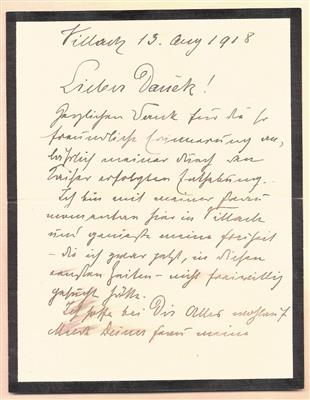 Villach 13. Aug 1918
Lieber Dauck!
Herzlichen Dank für die so
freundliche Erinnerung an,
läßlich meiner durch den
Kaiser erfolgten Enthebung.
Ich bin mit meiner Frau
momentan hier in Villach
und genieße meine Freiheit
– die ich zwar jetzt, in diesen
ernsten Zeiten – nicht freiwillig
gesucht hätte.
Ich hoffe bei Dir Alles wohlauf
Deiner Frau meine